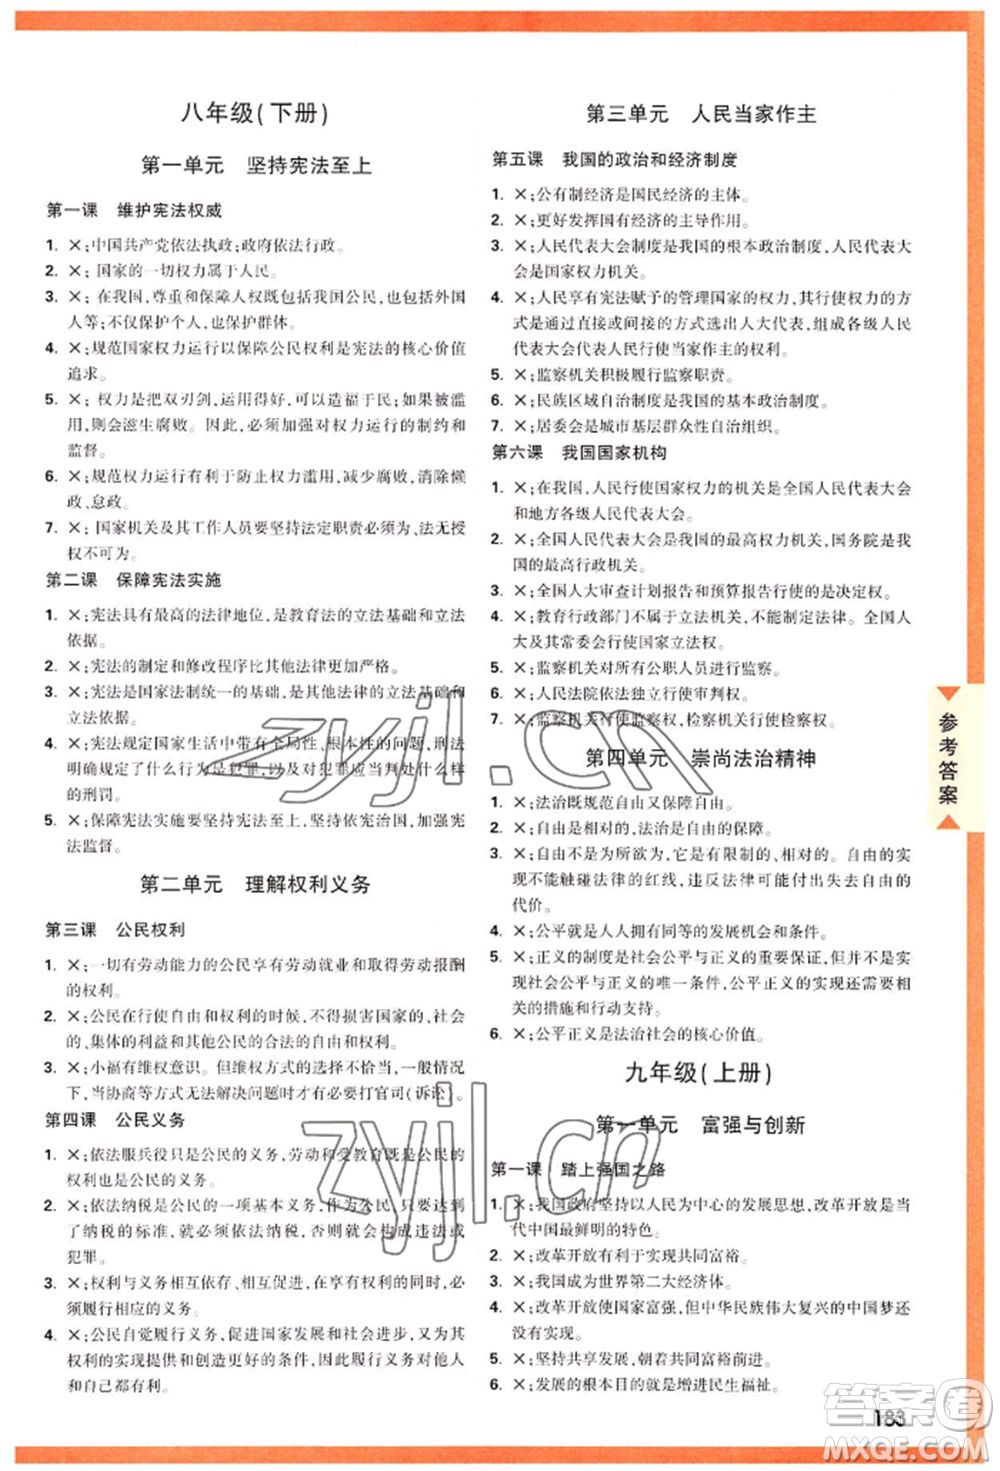 八年级(下册)
第一单元　坚持宪法至上
第一课　维护宪法权威
1. ×;中国共产党依法执政;政府依法行政。
2. ×; 国家的一切权力属于人民。
3. ×; 在我国,尊重和保障人权既包括我国公民,也包括外国
人等;不仅保护个人,也保护群体。
4. ×;规范国家权力运行以保障公民权利是宪法的核心价值
追求。
5. ×; 权力是把双刃剑,运用得好,可以造福于民;如果被滥
用,则会滋生腐败。因此,必须加强对权力运行的制约和
监督。
6. ×;规范权力运行有利于防止权力滥用,减少腐败,消除懒
政、怠政。
7. ×; 国家机关及其工作人员要坚持法定职责必须为,法无授
权不可为。
第二课　保障宪法实施
1. ×;宪法具有最高的法律地位,是教育法的立法基础和立法
依据。
2. ×;宪法的制定和修改程序比其他法律更加严格。
3. ×;宪法是国家法制统一的基础,是其他法律的立法基础和
立法依据。
4. ×;宪法规定国家生活中带有全局性、根本性的问题,刑法
明确规定了什么行为是犯罪,以及对犯罪应当处以什么样
的刑罚。
5. ×;保障宪法实施要坚持宪法至上,坚持依宪治国,加强宪
法监督。
第二单元　理解权利义务
第三课　公民权利
1. ×;一切有劳动能力的公民享有劳动就业和取得劳动报酬
的权利。
2. ×;公民在行使自由和权利的时候,不得损害国家的、社会
的、集体的利益和其他公民的合法的自由和权利。
3. ×;小福有维权意识。但维权方式的选择要根据具体情况
下,当协商等方式无法解决问题时才有必要打官司(诉讼)。
第四课　公民义务
1. ×;依法服兵役只是公民的义务,劳动和受教育既是公民的
权利也是公民的义务。
2. ×;依法纳税是公民的一项基本义务,作为公民,只要达到
了纳税的标准,就必须依法纳税,否则就会构成违法或
犯罪。
3. ×;权利与义务相互依存、相互促进,在享有权利的同时,必
须履行相应的义务。
4. ×;公民自觉履行义务,促进国家发展和社会进步,又为其
权利的实现提供和创造更好的条件,因此履行义务对他人
和自己都有利。
第三单元　人民当家作主
第五课　我国的政治和经济制度
1. ×;公有制经济是国民经济的主体。
2. ×;更好发挥国有经济的主导作用。
3. ×;人民代表大会制度是我国的根本政治制度,人民代表大
会是国家权力机关。
4. ×;人民享有宪法赋予的管理国家的权力,其行使权力的方
式是通过直接或间接的方式选出人大代表,组成各级人民
代表大会代表人民行使当家作主的权利。
5. ×;监察机关积极履行监察职责。
6. ×;民族区域自治制度是我国的基本政治制度。
7. ×;居委会是城市基层群众性自治组织。
第六课　我国国家机构
1. ×;在我国,人民行使国家权力的机关是全国人民代表大会
和地方各级人民代表大会。
2. ×;全国人民代表大会是我国的最高权力机关,国务院是我
国的最高行政机关。
3. ×;全国人大审查计划报告和预算报告是行使决定权。
4. ×;教育行政部门不属于立法机关,不能制定法律。全国人
大及其常委会行使国家立法权。
5. ×;监察机关对所有公职人员进行监察。
6. ×;人民法院依法独立行使审判权。
7. ×;监察机关行使监察权,检察机关行使检察权。
第四单元　崇尚法治精神
1. ×;法治既规范自由又保障自由。
2. ×;自由是相对的,法治是自由的保障。
3. ×;自由不是为所欲为,它是有限制的、相对的。自由的实现
不能触碰法律的红线,违反法律可能付出失去自由的
代价。
4. ×;公平就是人人拥有同等的发展机会和条件。
5. ×;正义的制度是社会公平与正义的重要保证,但不是
实现社会公平与正义的唯一条件,公平正义的实现需要相
关的措施和行动支持。
6. ×;公平正义是法治社会的核心价值。
九年级(上册)
第一单元　富强与创新
第一课　踏上强国之路
1. ×;我国政府坚持以人民为中心的发展思想,改革开放是当
代中国最鲜明的特色。
2. ×;改革开放有利于实现共同富裕。
3. ×;我国成为世界第二大经济体。
4. ×;改革开放使国家富强,但中华民族伟大复兴的中国梦还
没有实现。
5. ×;坚持共同发展,朝着共同富裕前进。
6. ×;发展的根本目的就是增进民生福祉。
参考答案
183
zyjl.cn
zyjl.cn
答案圈
MXQE.COM